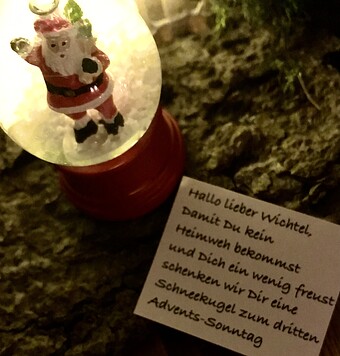 Hallo lieber Wichtel,
Damit Du kein
Heimweh bekommst
und Dich ein wenig freust
schenken wir Dir eine
Schneekugel zum dritten
Advents-Sonntag